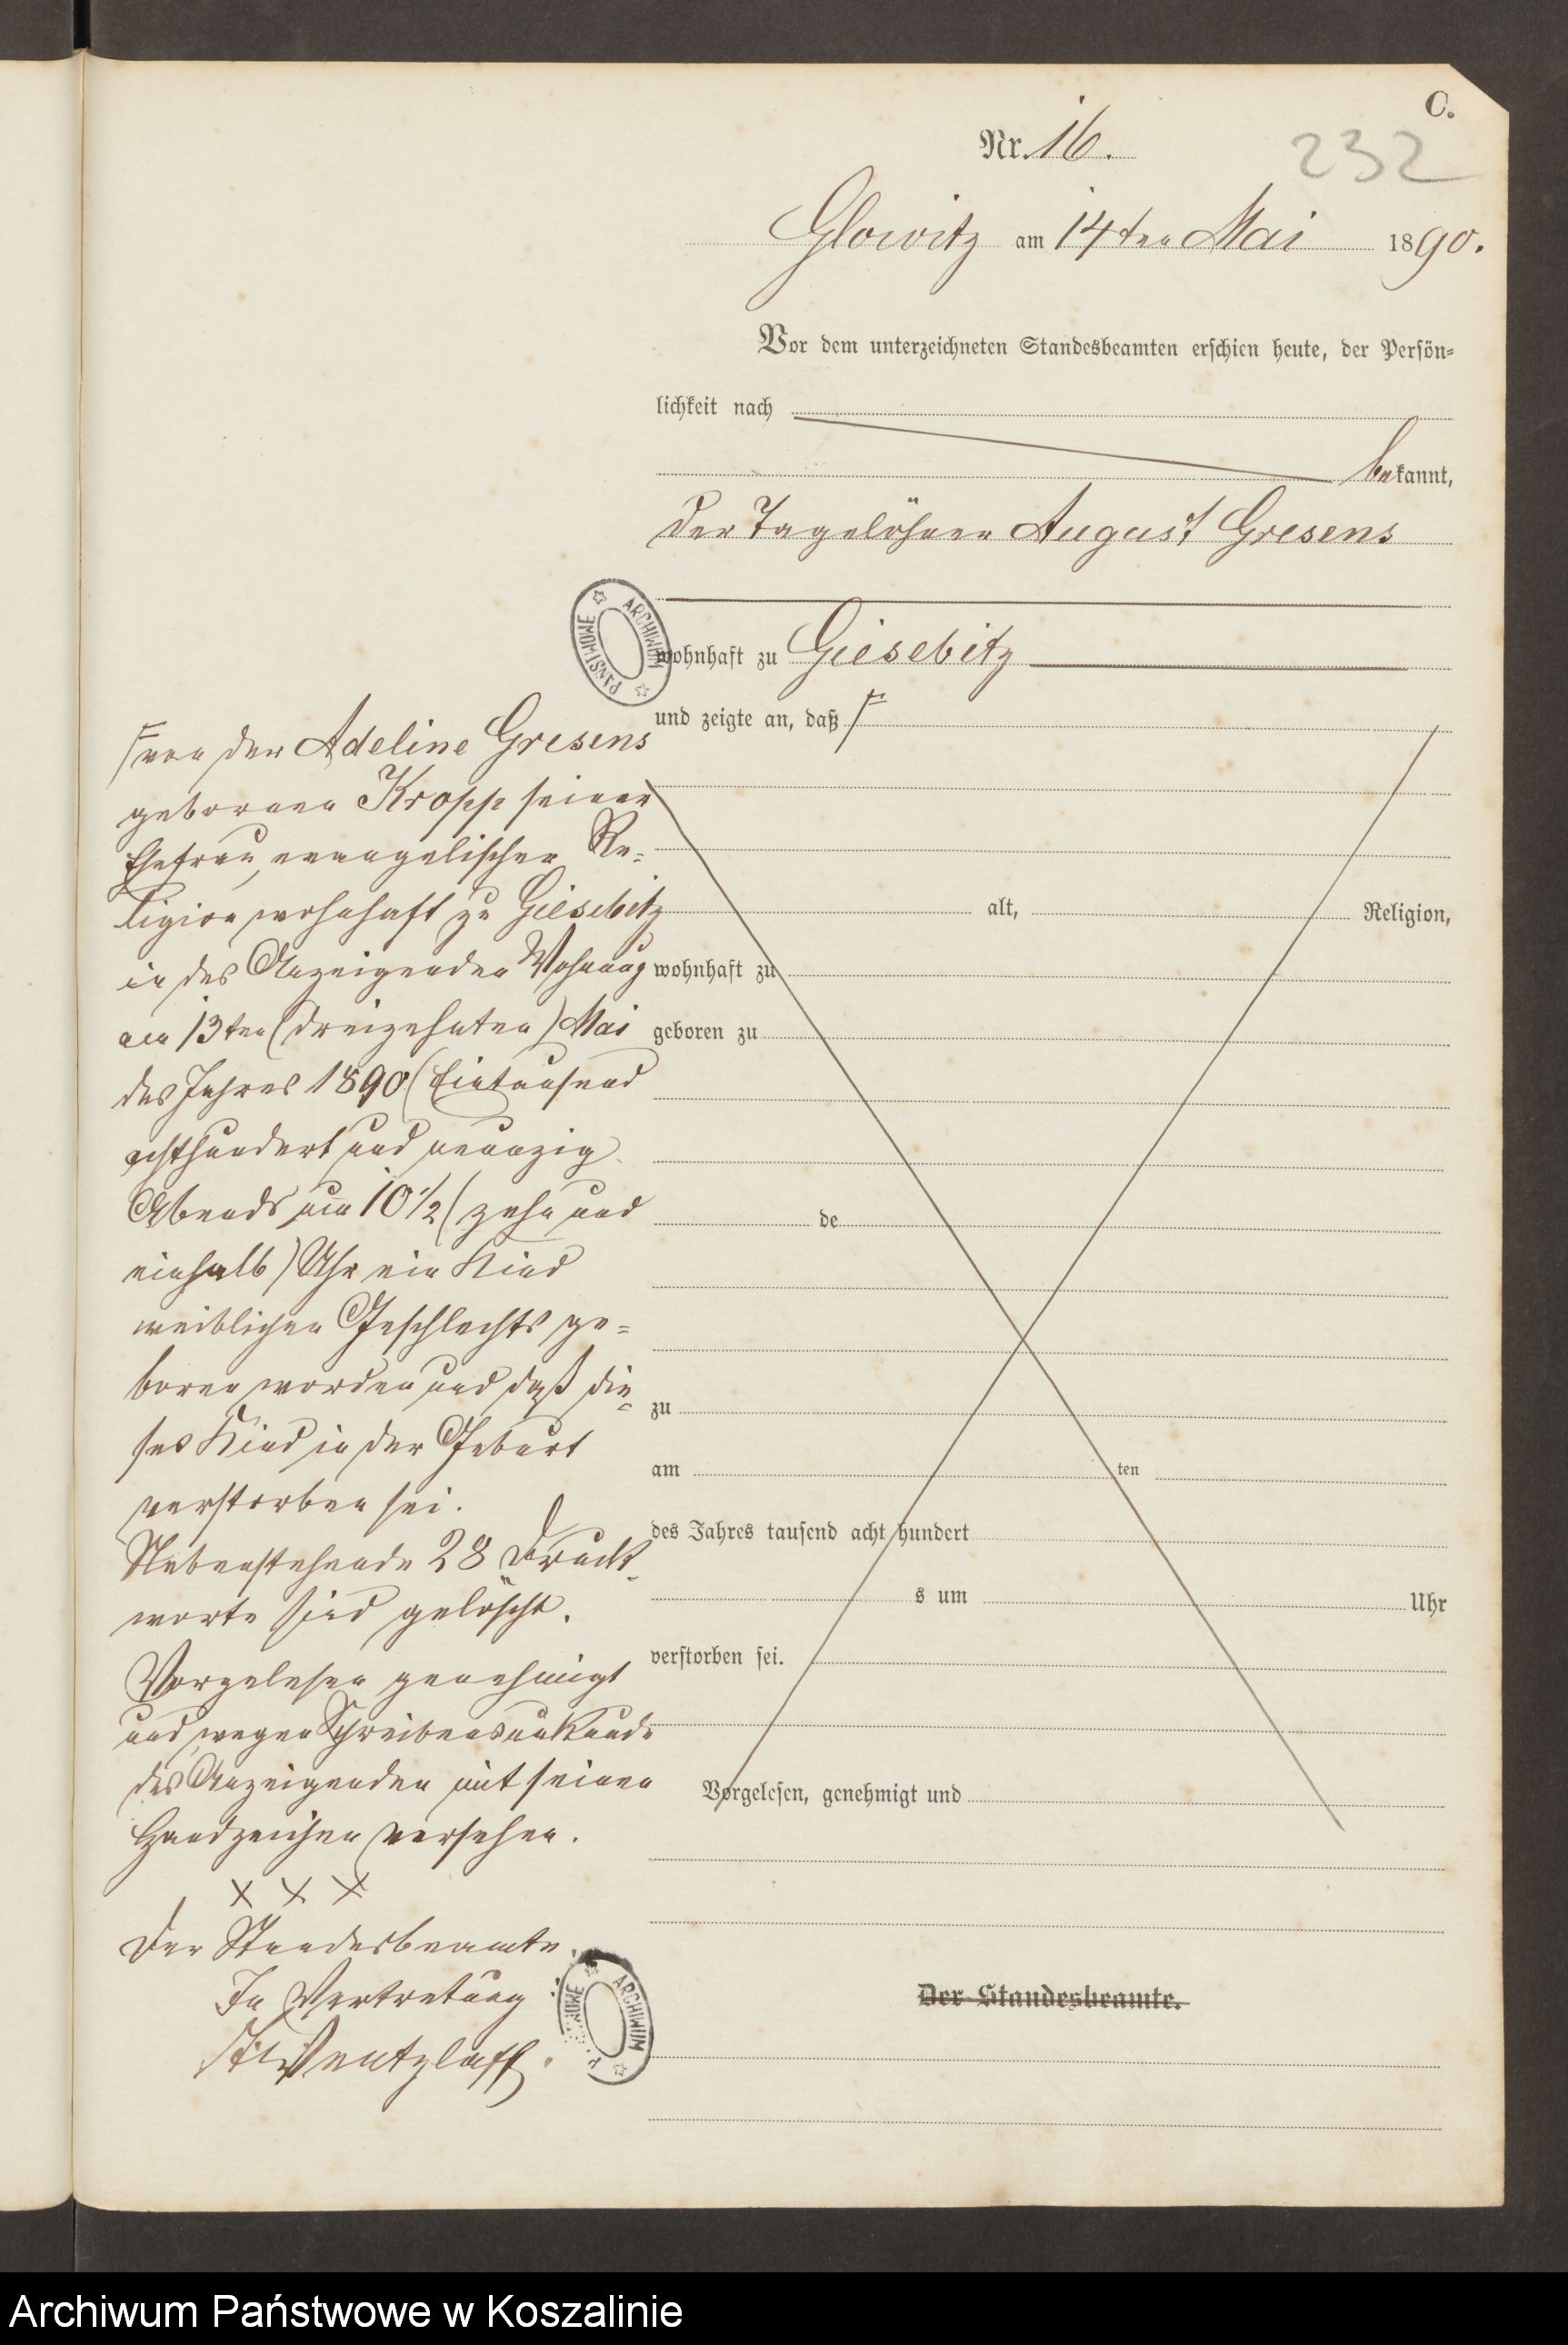 C.
Nr. 16.
232
Glowitz am 14ten Mai 1890.
Vor dem unterzeichneten Standesbeamten erschien heute, der Persön-
lichkeit nach
bekannt,
der Tagelöhner August Gresens
wohnhaft zu Giesebitz
und zeigte an, daß
von der Adeline Gresens
geborenen Kropp seiner
Ehefrau, evangelischer Re-
ligion wohnhaft zu Giesebitz
in des Anzeigenden Wohnung
am 13ten (dreizehnten) Mai
des Jahres 1890 (Eintausend
achthundert und neunzig
Abends um 10 1/2 (zehn und
einhalb) Uhr ein Kind
weiblichen Geschlechts ge-
boren worden und daß die-
ses Kind in der Geburt
verstorben sei.
Nebenstehende 28 Druck-
worte sind gelöscht.
Vorgelesen genehmigt
und wegen Schreibensunkunde
des Anzeigenden mit seinen
Handzeichen versehen.
X X X
Der Standesbeamte.
In Vertretung:
Wentzlaff.
alt, Religion,
wohnhaft zu
geboren zu
de
zu
am ten
des Jahres tausend acht hundert
s um Uhr
verstorben sei.
Vorgelesen, genehmigt und
Der Standesbeamte.
ARCHIWUM PAŃSTWOWE
ARCHIWUM
Archiwum Państwowe w Koszalinie